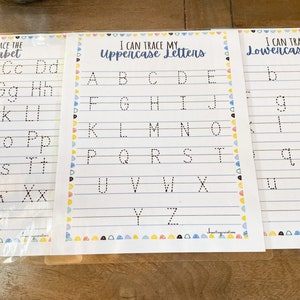 ACE THE
abet
Cc Dd
Gg Hh
Kk Ll
Oo Pp
Ss Tt
Xx
I CAN TRACE MY
UPPERCASE LETTERS
A B C D E
F G H I J
K L M N O
P Q R S T
U V W X
Y Z
I CAN TRA
LOWERCASE
b
g
l
q
u